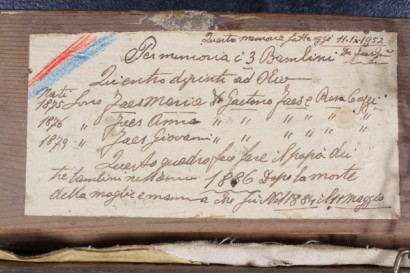 Questa memoria fatta oggi 11.12.1952
Per memoria i 3 Bambini
Qui entro dipinti ad Olio
Nati
1875 Sono Jaes Maria di Gaetano Jaes e Rosa
1876 " Jaes Anna " " " " "
1879 " Jaes Giovanni " " " " "
Questo quadro fece fare il papà dei
tre bambini nell'anno 1886 Dopo la morte
della moglie e mamma che fu nel 1884 il 11 maggio